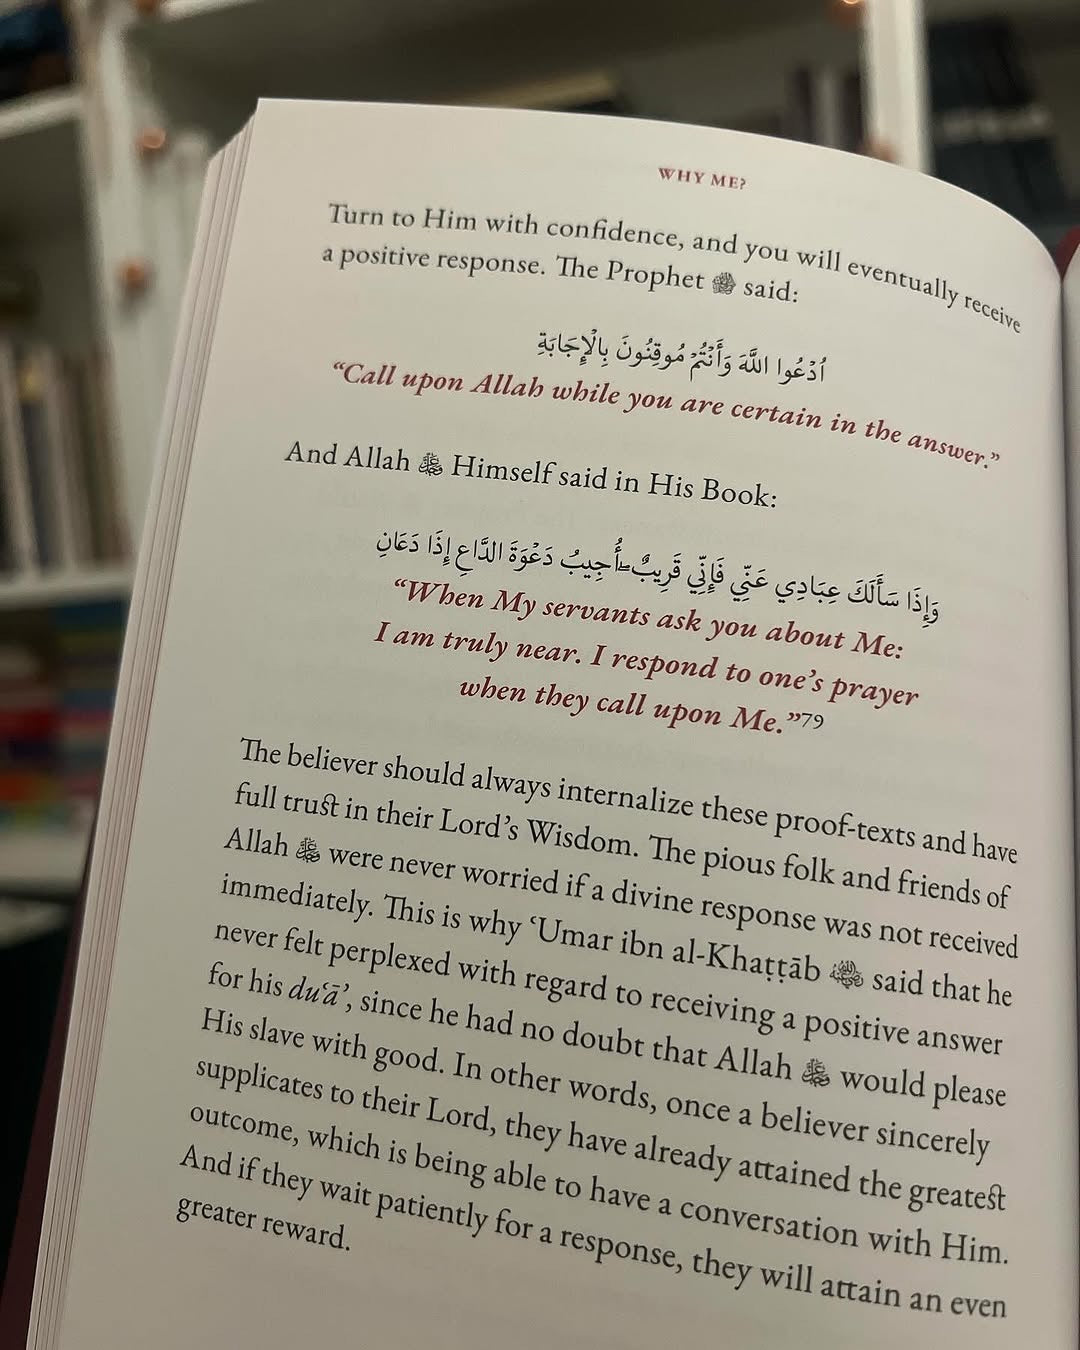 WHY ME?
Turn to Him with confidence, and you will eventually receive
a positive response. The Prophet ﷺ said:
اُدْعُوا اللَّهَ وَأَنْتُمْ مُوقِنُونَ بِالْإِجَابَةِ
“Call upon Allah while you are certain in the answer.”
And Allah ﷻ Himself said in His Book:
وَإِذَا سَأَلَكَ عِبَادِي عَنِّي فَإِنِّي قَرِيبٌ ۖ أُجِيبُ دَعْوَةَ الدَّاعِ إِذَا دَعَانِ
“When My servants ask you about Me:
I am truly near. I respond to one’s prayer
when they call upon Me.”79
The believer should always internalize these proof-texts and have
full trust in their Lord’s Wisdom. The pious folk and friends of
Allah ﷻ were never worried if a divine response was not received
immediately. This is why ‘Umar ibn al-Khaṭṭāb said that he
never felt perplexed with regard to receiving a positive answer
for his du‘ā’, since he had no doubt that Allah ﷻ would please
His slave with good. In other words, once a believer sincerely
supplicates to their Lord, they have already attained the greatest
outcome, which is being able to have a conversation with Him.
And if they wait patiently for a response, they will attain an even
greater reward.